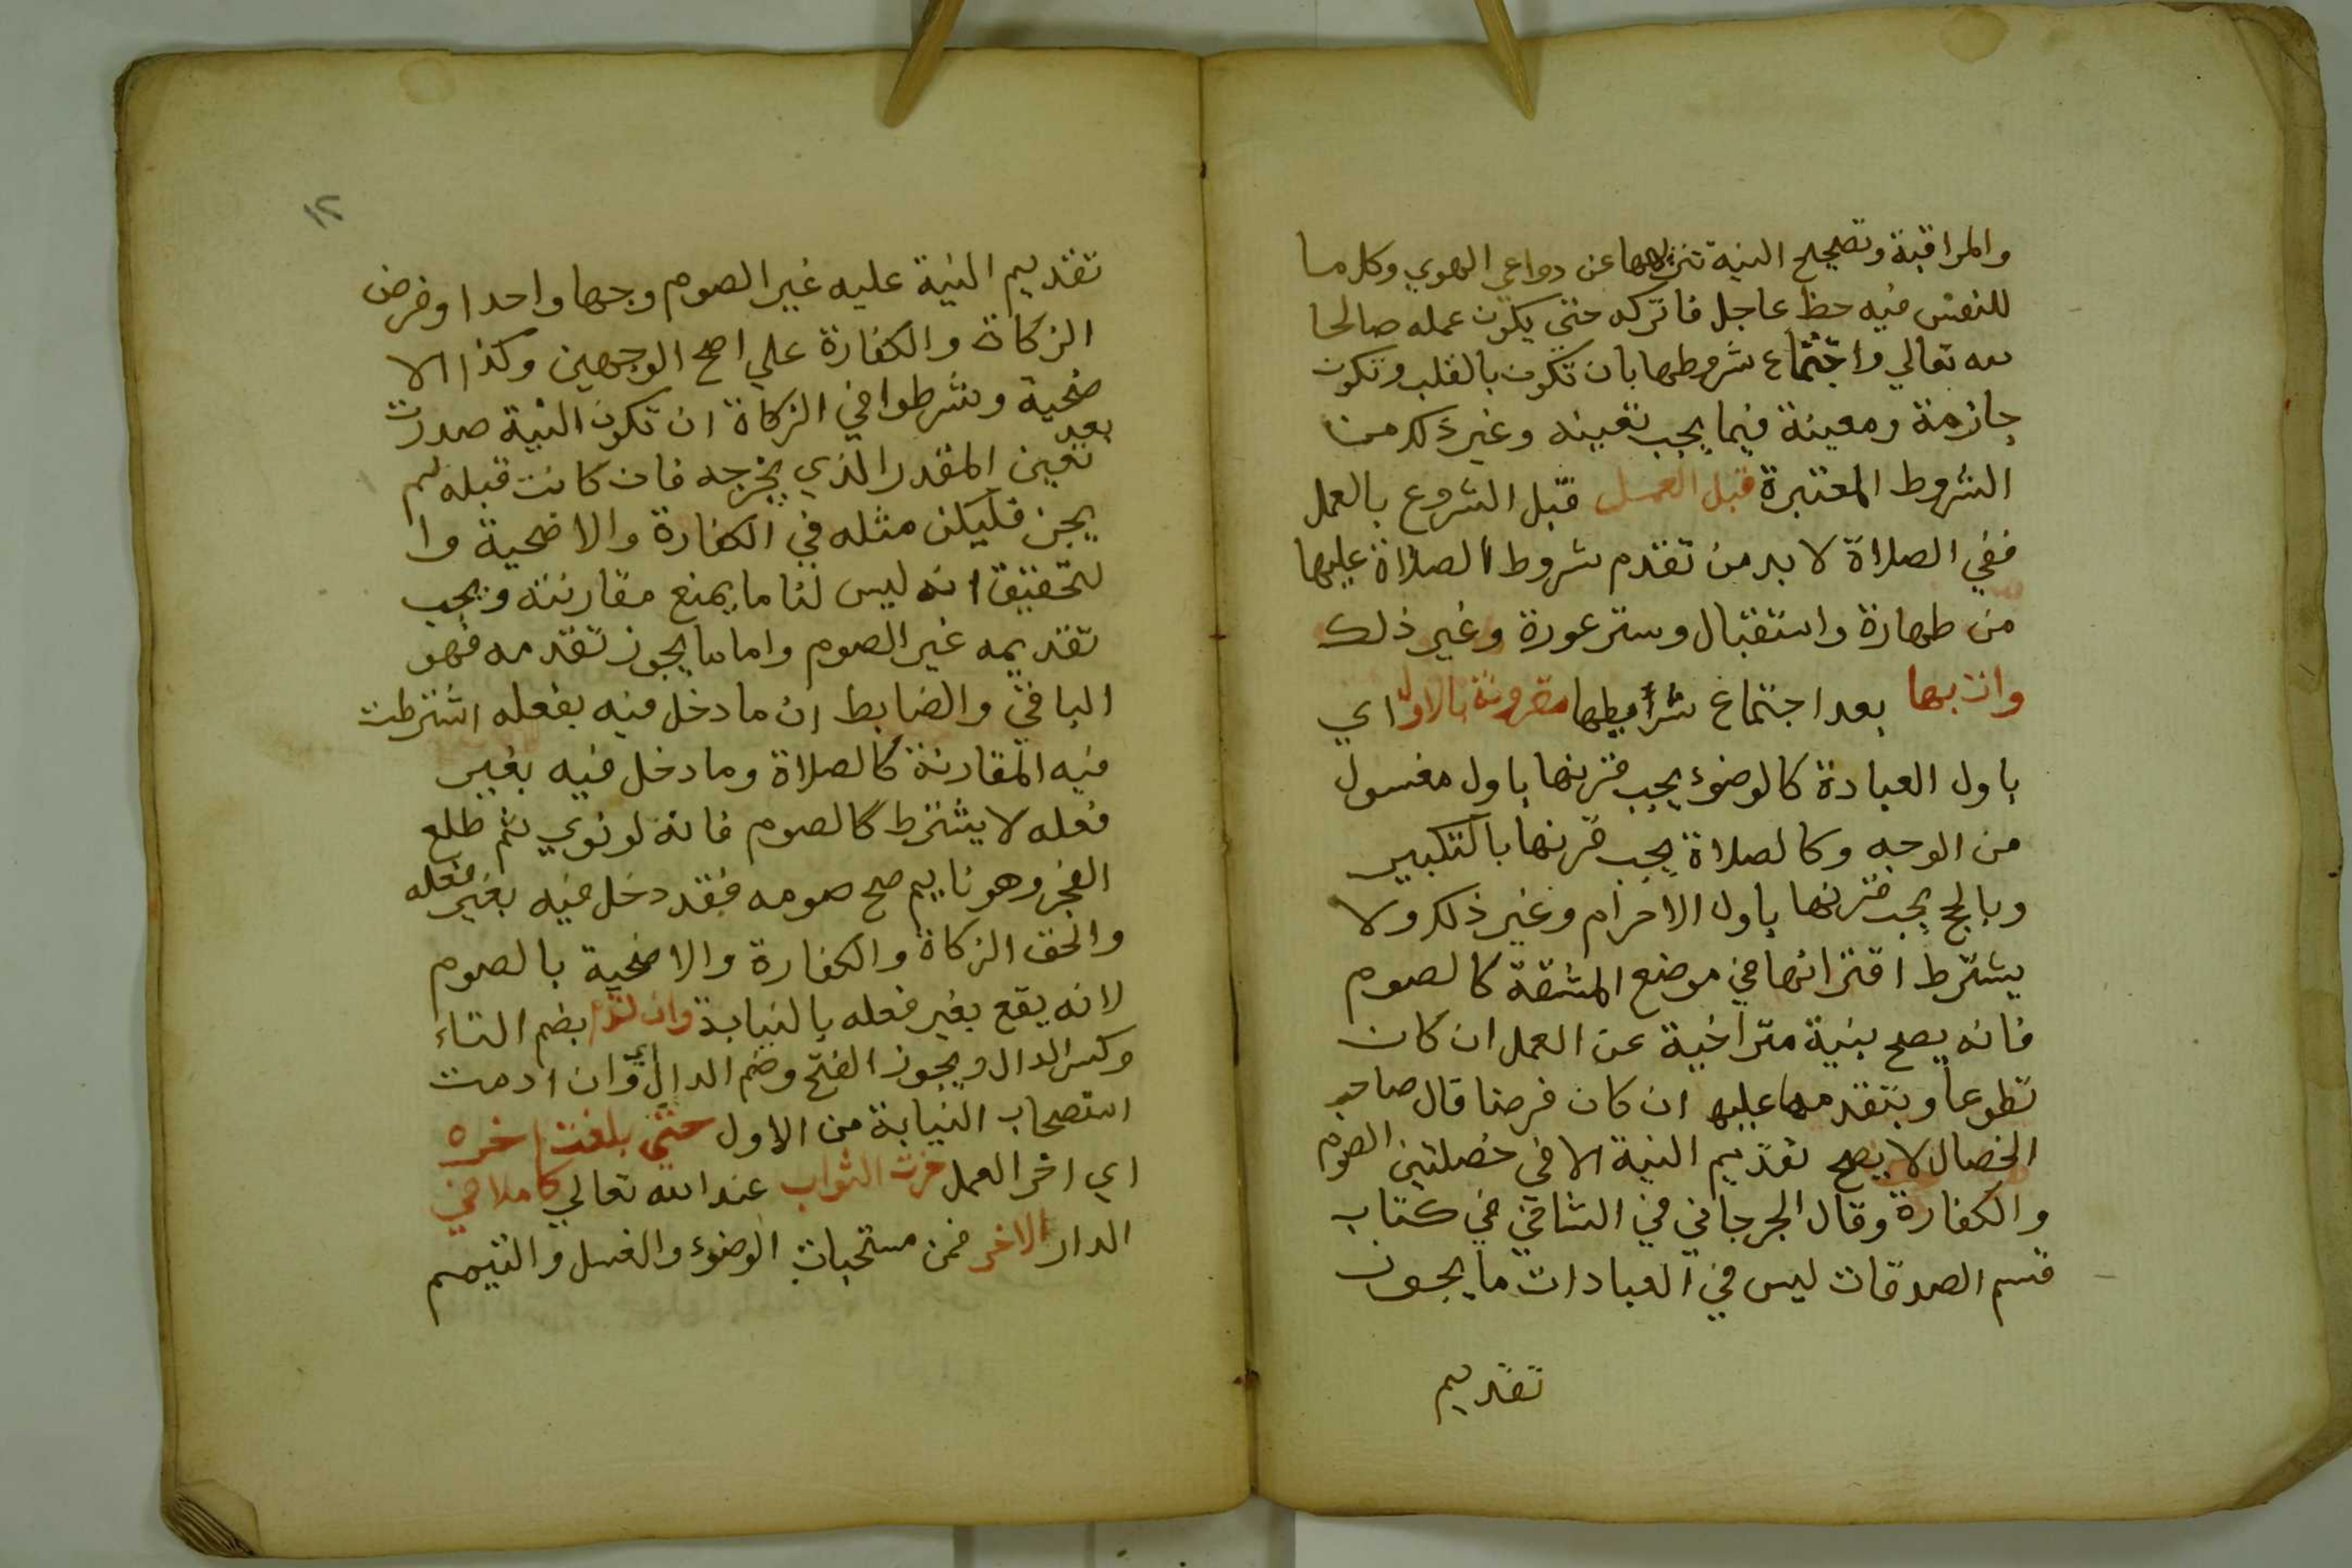 والمراقبة وتصحيح النية تنزيهها عن دواعي الهوي وكل ما
للنفس فيه حظ عاجل فاتركه حتي يكون عمله صالحا
لله تعالي واجتماع شروطها بان تكون بالقلب وتكون
جازمة ومعينة فيما يجب تعيينه وغير ذلك من
الشروط المعتبرة قبل العمل قبل الشروع بالعمل
ففي الصلاة لا بد من تقدم شروط الصلاة عليها
من طهارة واستقبال وستر عورة وغير ذلك
وات بها بعد اجتماع شرايطها مقرونة بالاول اي
باول العبادة كالوضوء يجب قرنها باول مغسول
من الوجه وكالصلاة يجب قرنها بالتكبير
وبالحج يجب قرنها باول الاحرام وغير ذلك ولا
يشترط اقترانها في موضع المشقة كالصوم
فانه يصح بنية متراخية عن العمل ان كان
تطوعا وبتقدمها عليه ان كان فرضا قال صاحب
الخصال لا يصح تقديم النية الا في خصلتين الصوم
والكفارة وقال الجرجاني في الشافي في كتاب
قسم الصدقات ليس في العبادات ما يجوز
تقديم
١٢
تقديم النية عليه غير الصوم وجها واحدا وفرض
الزكاة والكفارة علي اصح الوجهين وكذا الا
ضحية وشرطوا في الزكاة ان تكون النية صدرت
بعد
تعين المقدر الذي يخرجه فان كانت قبله لم
يجز فليكن مثله في الكفارة والاضحية وا
لتحقيق انه ليس لنا ما يمنع مقارنته ويجب
تقديمه غير الصوم واما ما يجوز تقدمه فهو
الباقي والضابط ان ما دخل فيه بفعله اشترطت
فيه المقارنة كالصلاة وما دخل فيه بغير
فعله لا يشترط كالصوم فانه لو نوي ثم طلع
الفجر وهو نايم صح صومه فقد دخل فيه بغير فعله
والحق الزكاة والكفارة والاضحية بالصوم
لانه يقع بغير فعله بالنيابة وان تدم بضم التاء
وكسر الدال ويجوز الفتح وضم الدال اي وان ادمت
استصحاب النيابة من الاول حتي بلغت اخره
اي اخر العمل حزت الثواب عند الله تعالي كاملا في
الدار الاخر فمن مستحبات الوضوء والغسل والتيمم